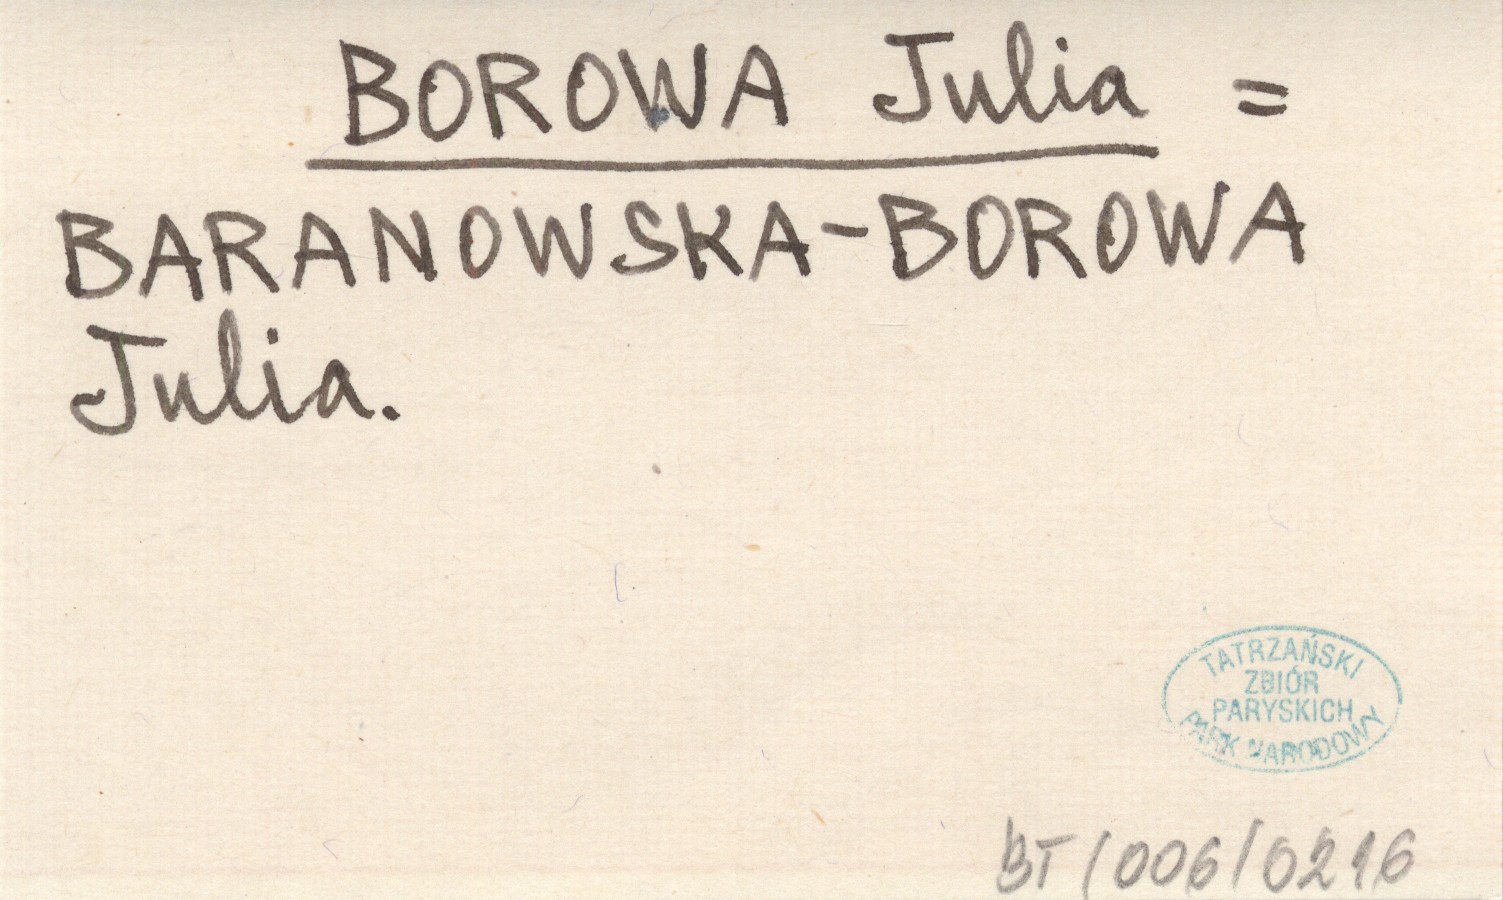 BOROWA Julia =
BARANOWSKA-BOROWA
Julia.
TATRZAŃSKI
ZBIÓR
PARYSKICH
PARK NARODOWY
BT/006/0216